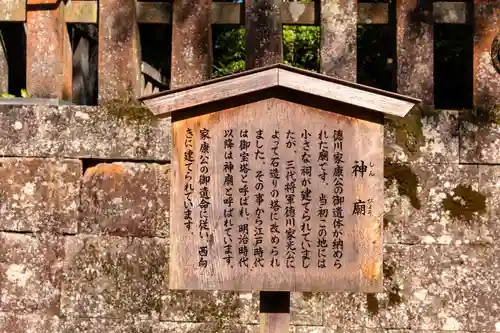 神廟
しん
びょう
徳川家康公の御遺体が納めら
れた廟です。当初この地には
小さな祠が建てられていまし
たが、三代将軍徳川家光公に
よって石造りの塔に改められ
ました。その事から江戸時代
は御宝塔と呼ばれ、明治時代
以降は神廟と呼ばれています。
家康公の御遺命に従い、西向
きに建てられています